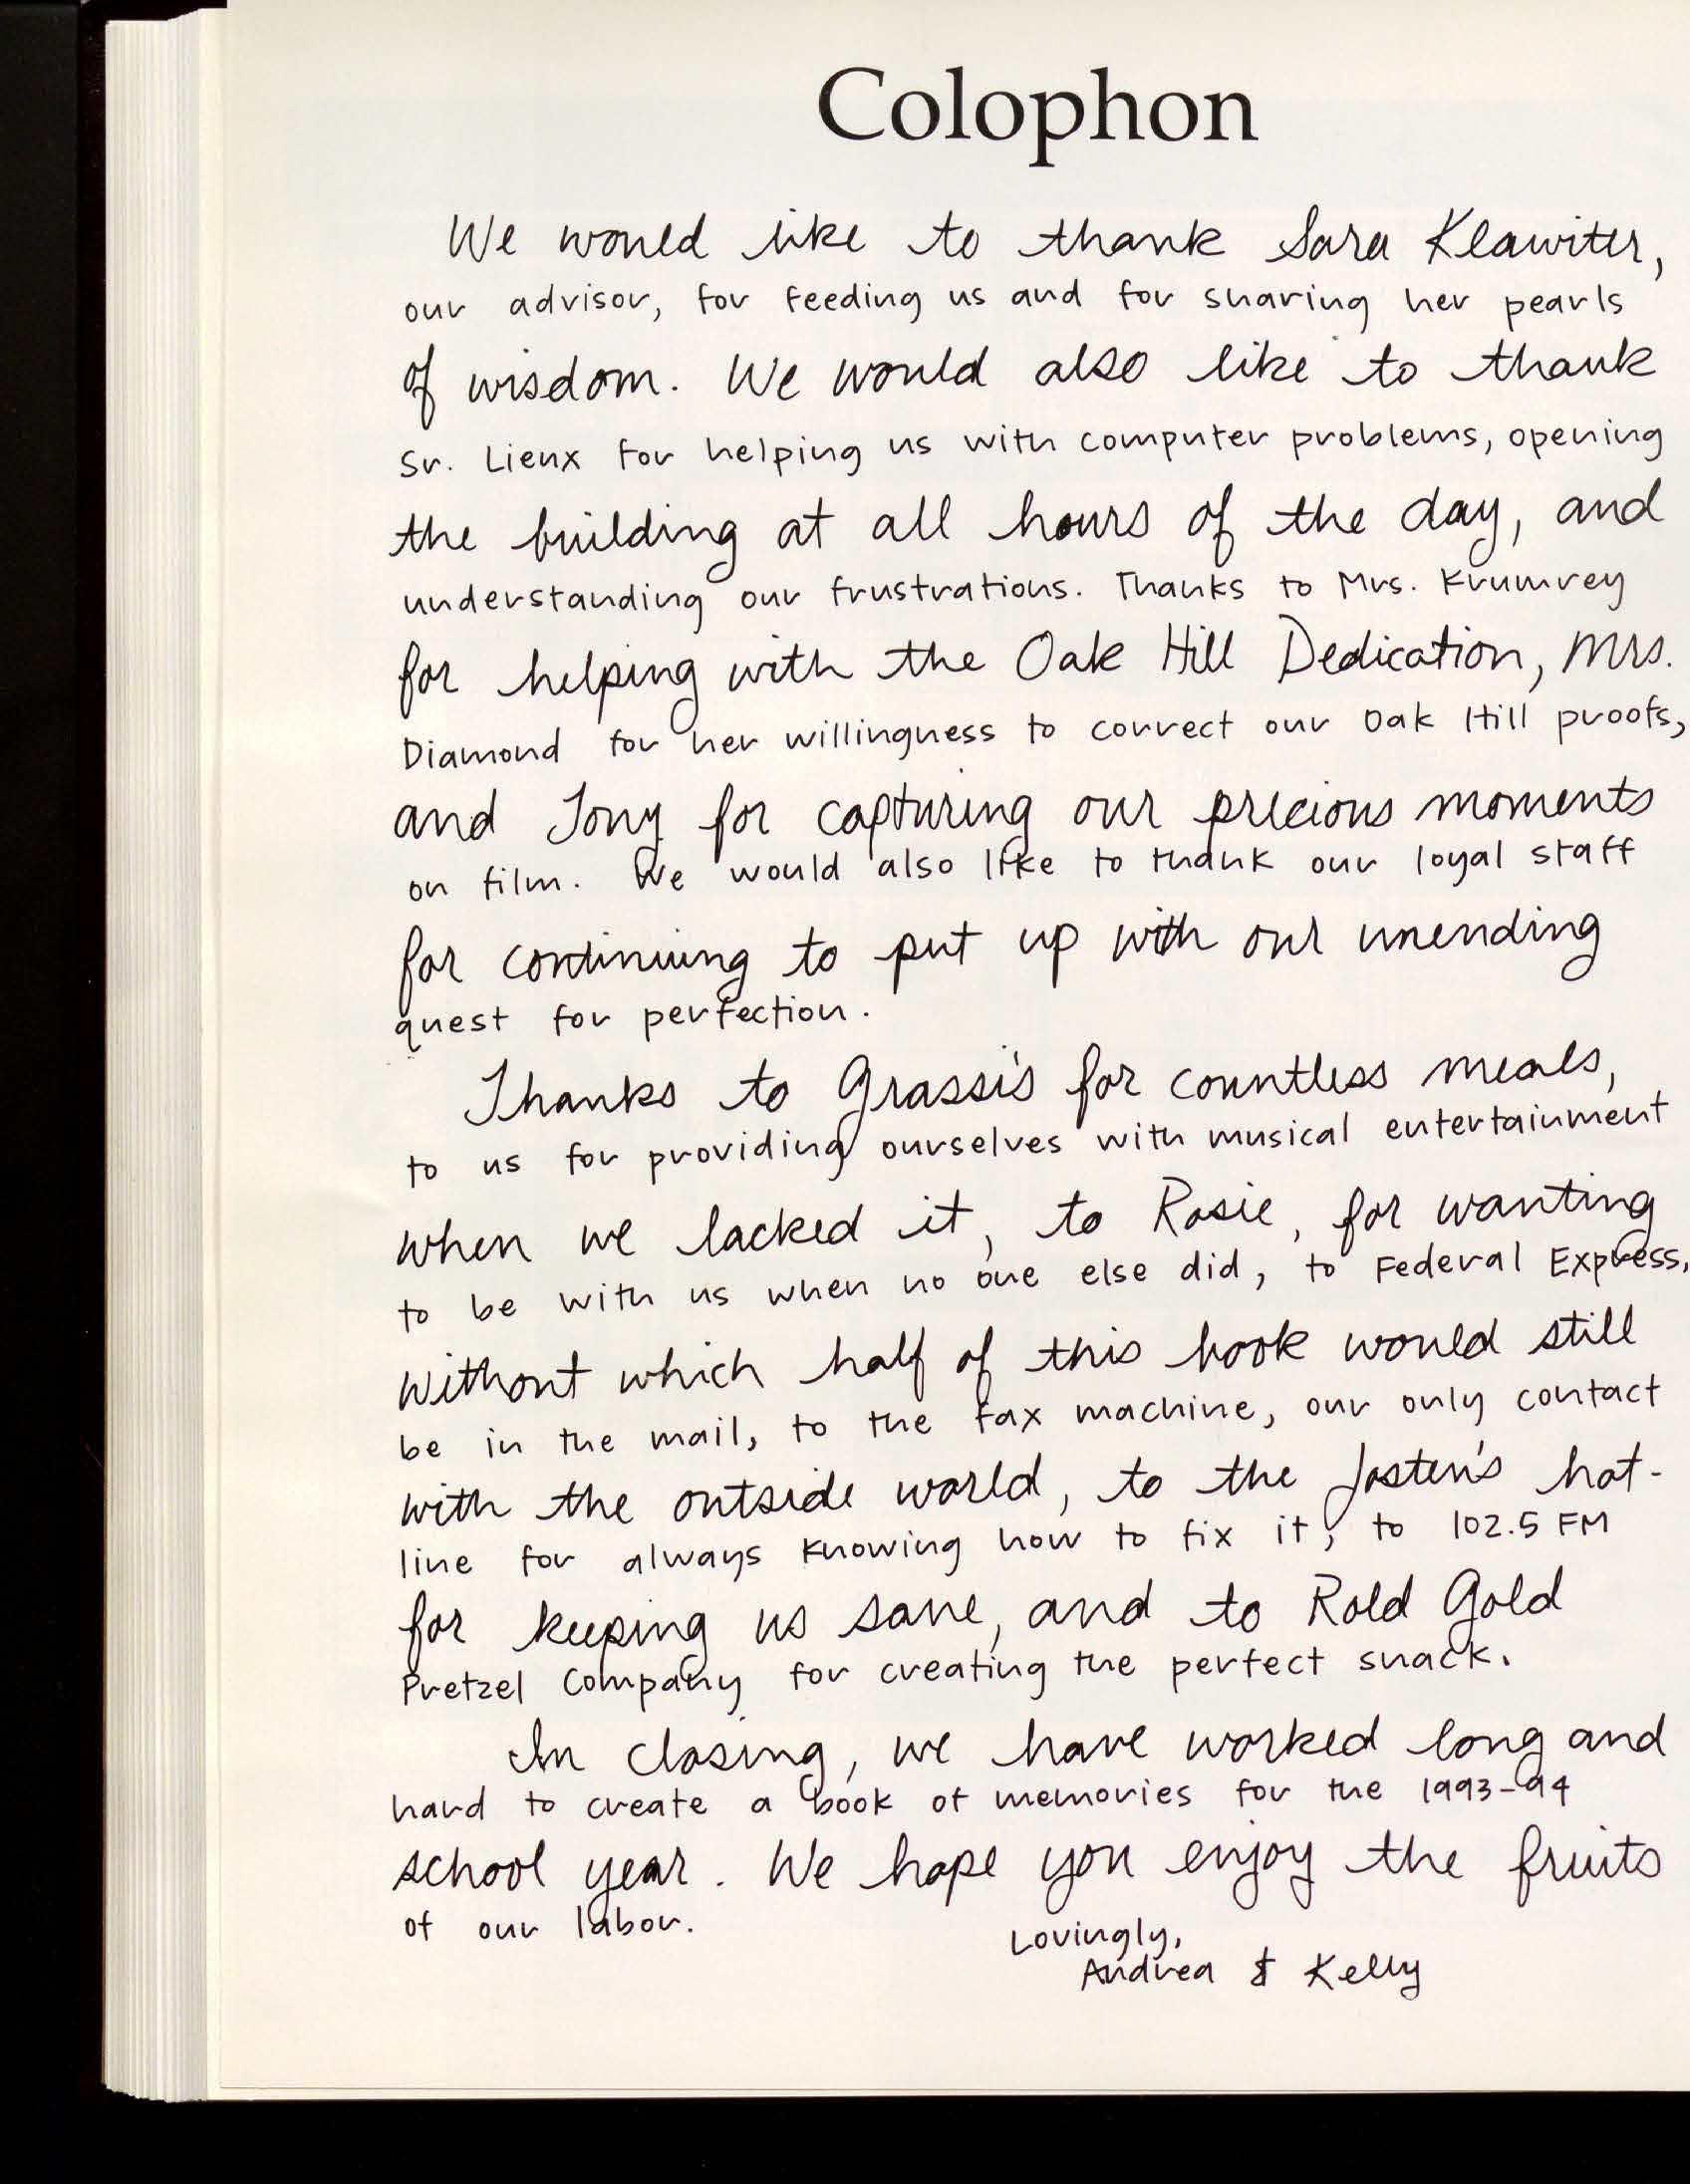 Colophon
We would like to thank Sara Klawiter,
our advisor, for feeding us and for sharing her pearls
of wisdom. We would also like to thank
Sr. Lieux for helping us with computer problems, opening
the building at all hours of the day, and
understanding our frustrations. Thanks to Mrs. Krumrey
for helping with the Oak Hill Dedication, Mrs.
Diamond for her willingness to correct our Oak Hill proofs,
and Tony for capturing our precious moments
on film. We would also like to thank our loyal staff
for continuing to put up with our unending
quest for perfection.
Thanks to Grassi's for countless meals,
to us for providing ourselves with musical entertainment
when we lacked it, to Rosie, for wanting
to be with us when no one else did, to Federal Express,
without which half of this book would still
be in the mail, to the fax machine, our only contact
with the outside world, to the Josten's hot-
line for always knowing how to fix it, to 102.5 FM
for keeping us sane, and to Rold Gold
Pretzel Company for creating the perfect snack.
In closing, we have worked long and
hard to create a book of memories for the 1993-94
school year. We hope you enjoy the fruits
of our labor.
Lovingly,
Andrea & Kelly